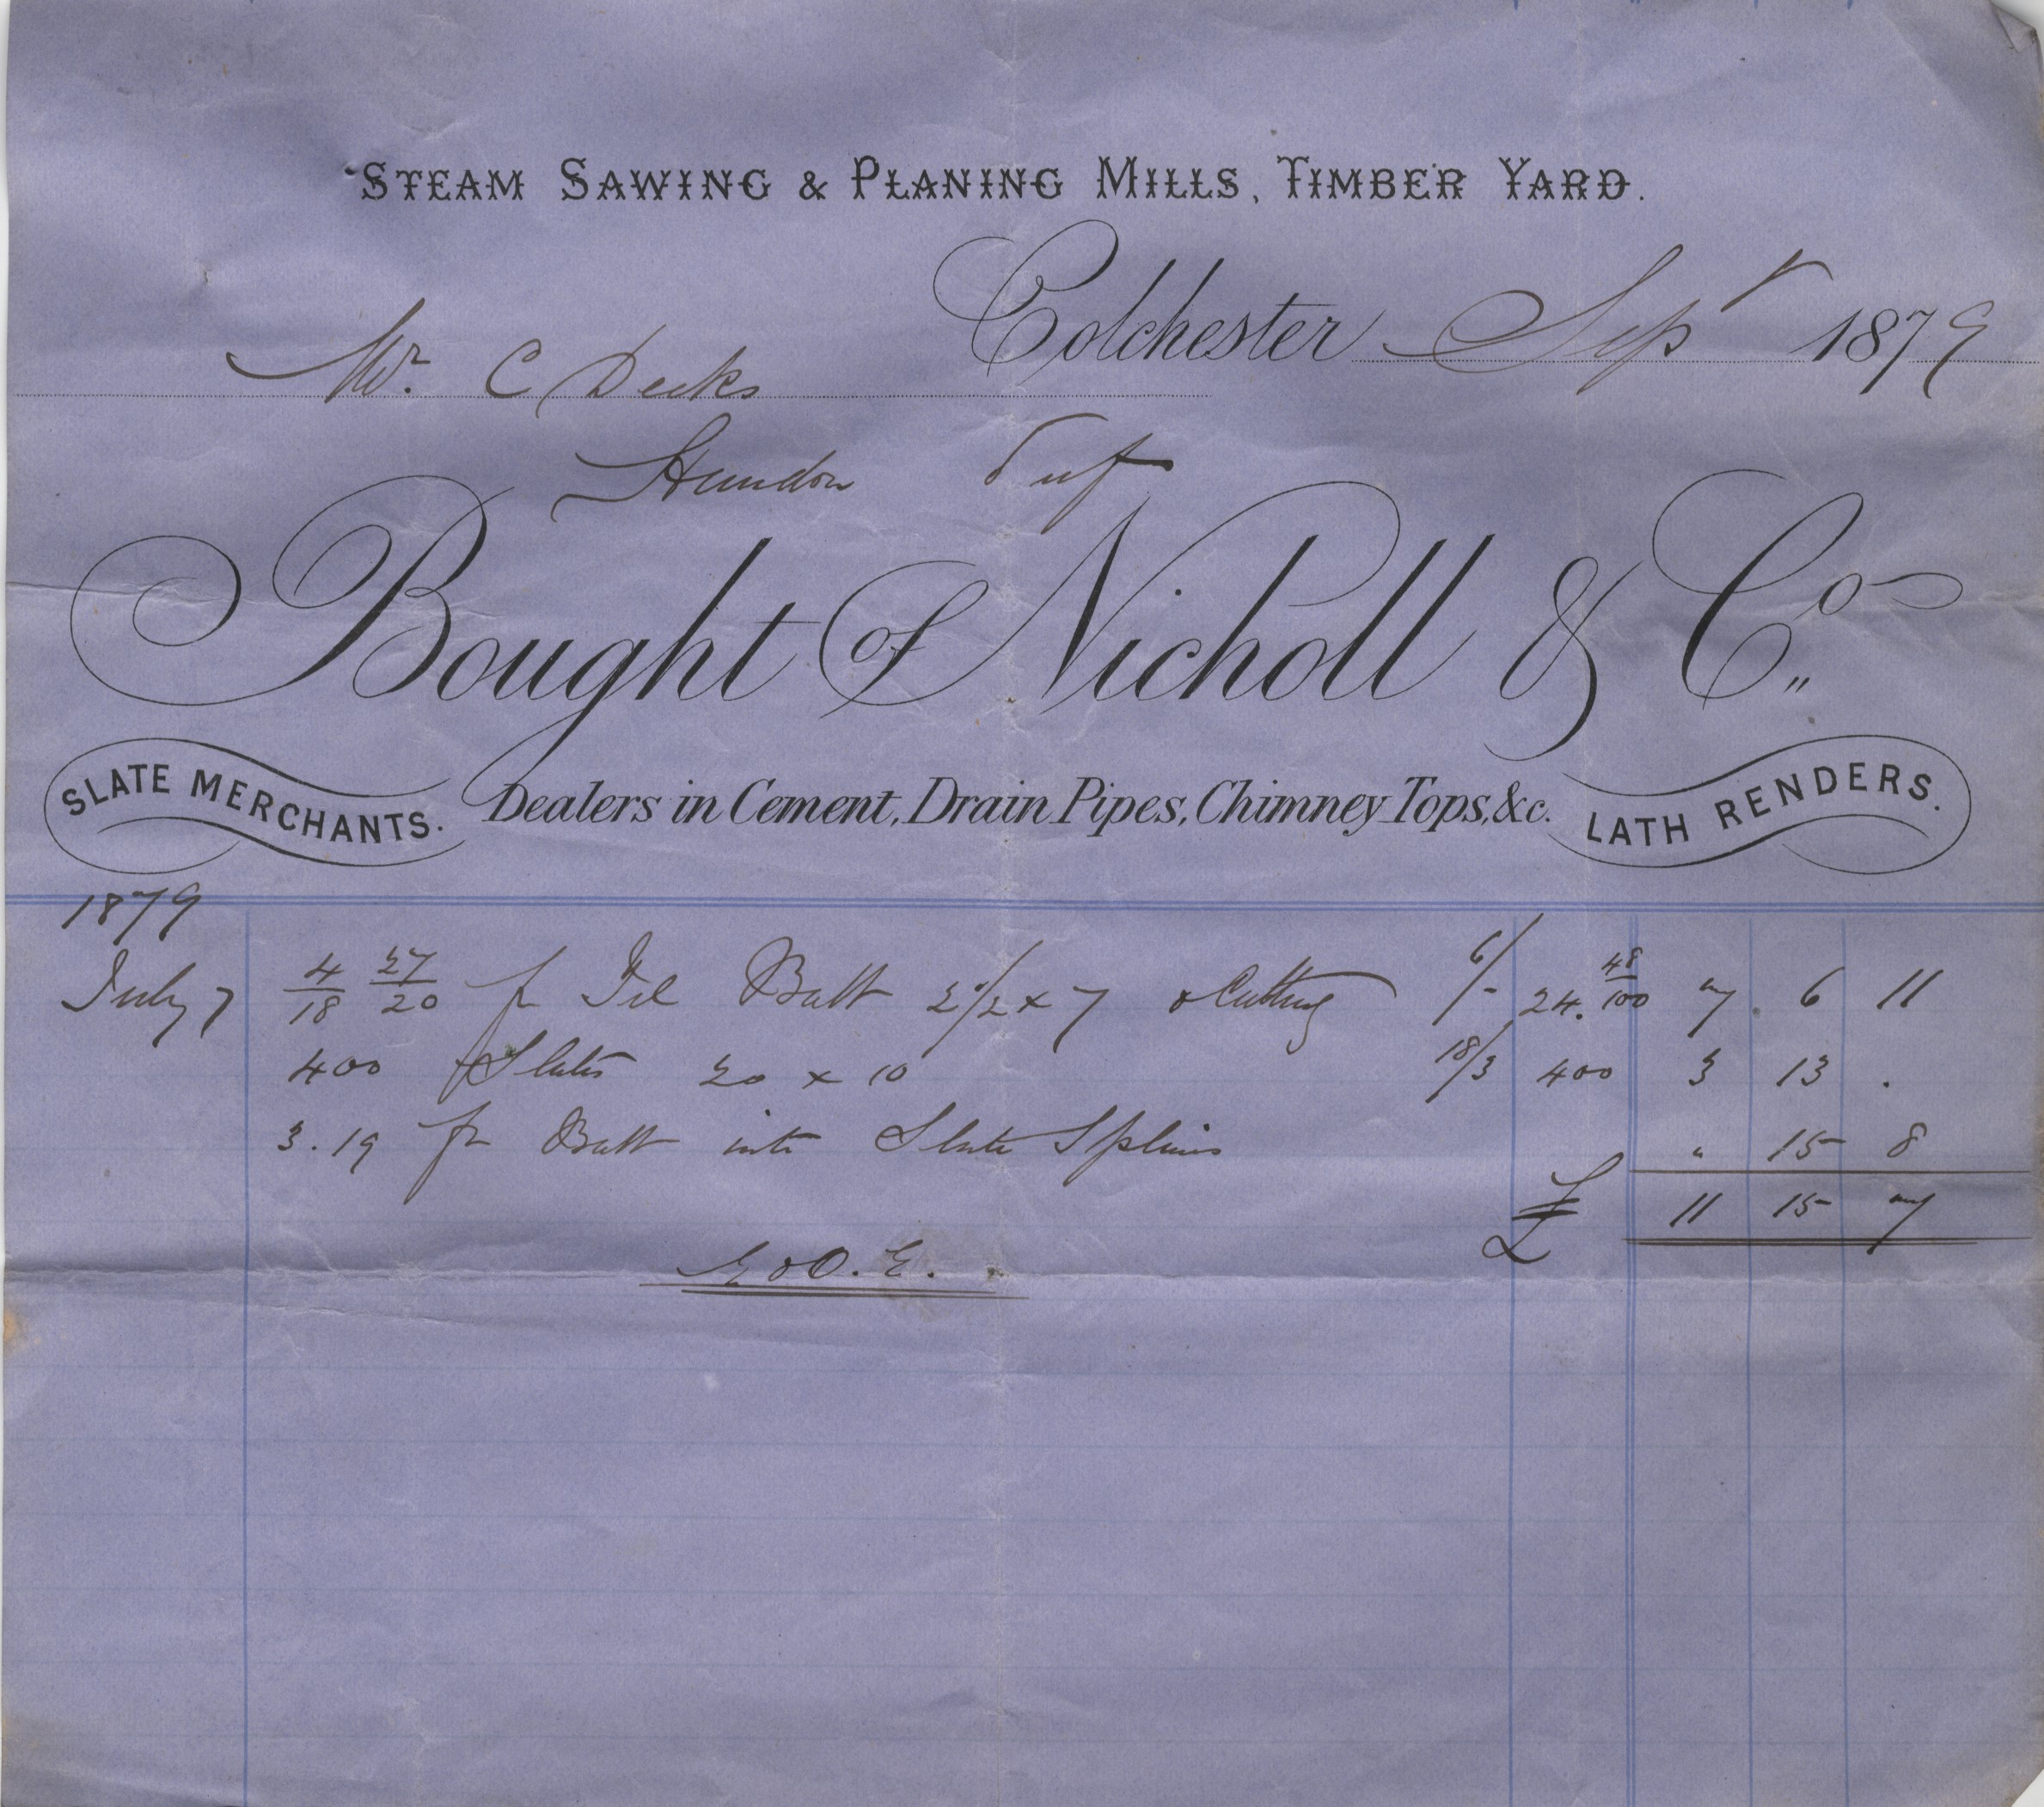 STEAM SAWING & PLANING MILLS, TIMBER YARD.
Colchester Sepr 1879
Mr. C Deeks
Hundon Suf
Bought of Nicholl & Co.
SLATE MERCHANTS. Dealers in Cement, Drain Pipes, Chimney Tops, &c. LATH RENDERS.
1879
July 7 4/18 27/20 fr Yel Batt 2 1/2 x 7 & Cutting 6/- 24. 48/100 7 6 11
400 Slates 20 x 10 18/3 400 3 13 .
3.19 fr Batt into Slate Splines " 15 8
£ 11 15 7
E & O. E.